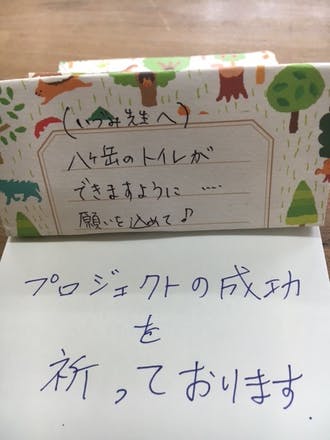 (いづみ先生へ)
八ヶ岳のトイレが
できますように....
願いを込めて♪
プロジェクトの成功
を
祈っております.